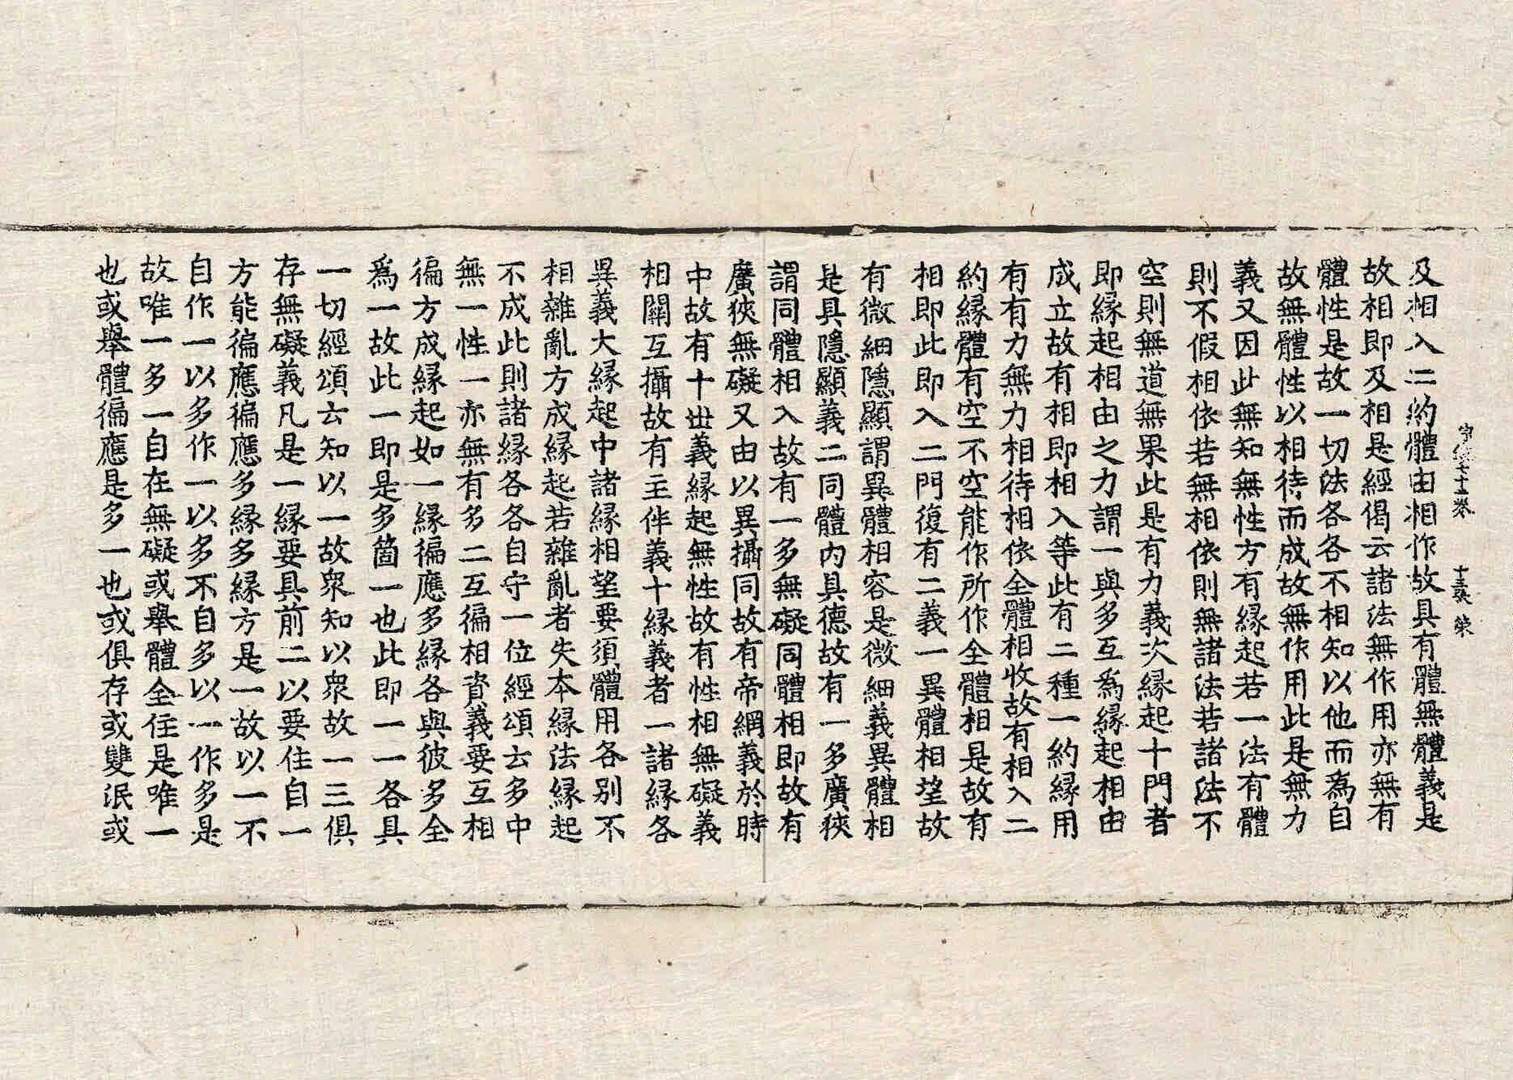 及相入二約體由相作故具有體無體義是
故相即及相是經偈云諸法無作用亦無有
體性是故一切法各各不相知以他而為自
故無體性以相待而成故無作用此是無力
義又因此無知無性方有緣起若一法有體
則不假相依若無相依則無諸法若諸法不
空則無道無果此是有力義次緣起十門者
即緣起相由之力謂一與多互為緣起相由
成立故有相即相入等此有二種一約緣用
有有力無力相待相依全體相收故有相入二
約緣體有空不空能作所作全體相是故有
相即此即入二門復有二義一異體相望故
有微細隱顯謂異體相容是微細義異體相
是具隱顯義二同體內具德故有一多廣狹
謂同體相入故有一多無礙同體相即故有
廣狹無礙又由以異攝同故有帝網義於時
中故有十世義緣起無性故有性相無礙義
相關互攝故有主伴義十緣義者一諸緣各
異義大緣起中諸緣相望要須體用各別不
相雜亂方成緣起若雜亂者失本緣法緣起
不成此則諸緣各各自守一位經頌云多中
無一性一亦無有多二互徧相資義要互相
徧方成緣起如一緣徧應多緣各與彼多全
爲一故此一即是多箇一也此即一一各具
一切經頌云知以一故衆知以衆故一三俱
存無礙義凡是一緣要具前二以要住自一
方能徧應徧應多緣多緣方是一故以一不
自作一以多作一以多不自多以一作多是
故唯一多一自在無礙或舉體全住是唯一
也或舉體徧應是多一也或俱存或雙泯或